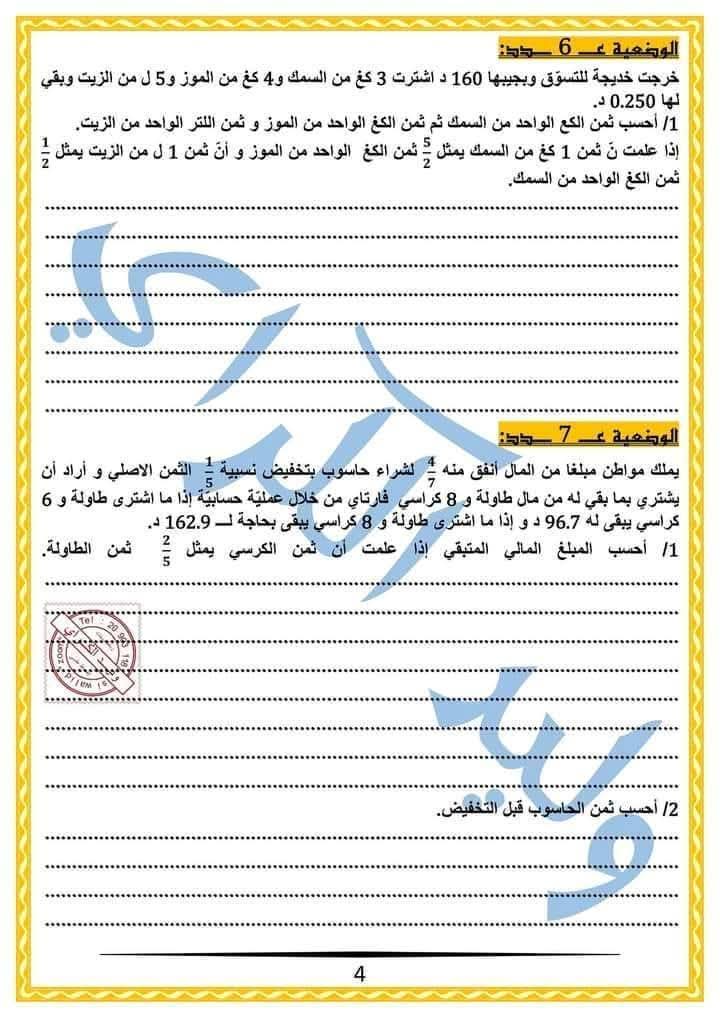 الوضعية عـــ 6 ــدد:
خرجت خديجة للتسوّق وبجيبها 160 د اشترت 3 كغ من السمك و4 كغ من الموز و5 ل من الزيت وبقي
لها 0.250 د.
1/ أحسب ثمن الكع الواحد من السمك ثم ثمن الكغ الواحد من الموز و ثمن اللتر الواحد من الزيت.
إذا علمت نّ ثمن 1 كغ من السمك يمثل 5/2 ثمن الكغ الواحد من الموز و أنّ ثمن 1 ل من الزيت يمثل 1/2
ثمن الكغ الواحد من السمك.
الوضعية عـــ 7 ــدد:
يملك مواطن مبلغا من المال أنفق منه 4/7 لشراء حاسوب بتخفيض نسبية 1/5 الثمن الاصلي و أراد أن
يشتري بما بقي له من مال طاولة و 8 كراسي فارتاي من خلال عمليّة حسابيّة إذا ما اشترى طاولة و 6
كراسي يبقى له 96.7 د و إذا ما اشترى طاولة و 8 كراسي يبقى بحاجة لـــ 162.9 د.
1/ أحسب المبلغ المالي المتبقي إذا علمت أن ثمن الكرسي يمثل 2/5 ثمن الطاولة.
Tel : 20 963 118
2/ أحسب ثمن الحاسوب قبل التخفيض.
وليد الكراي
4